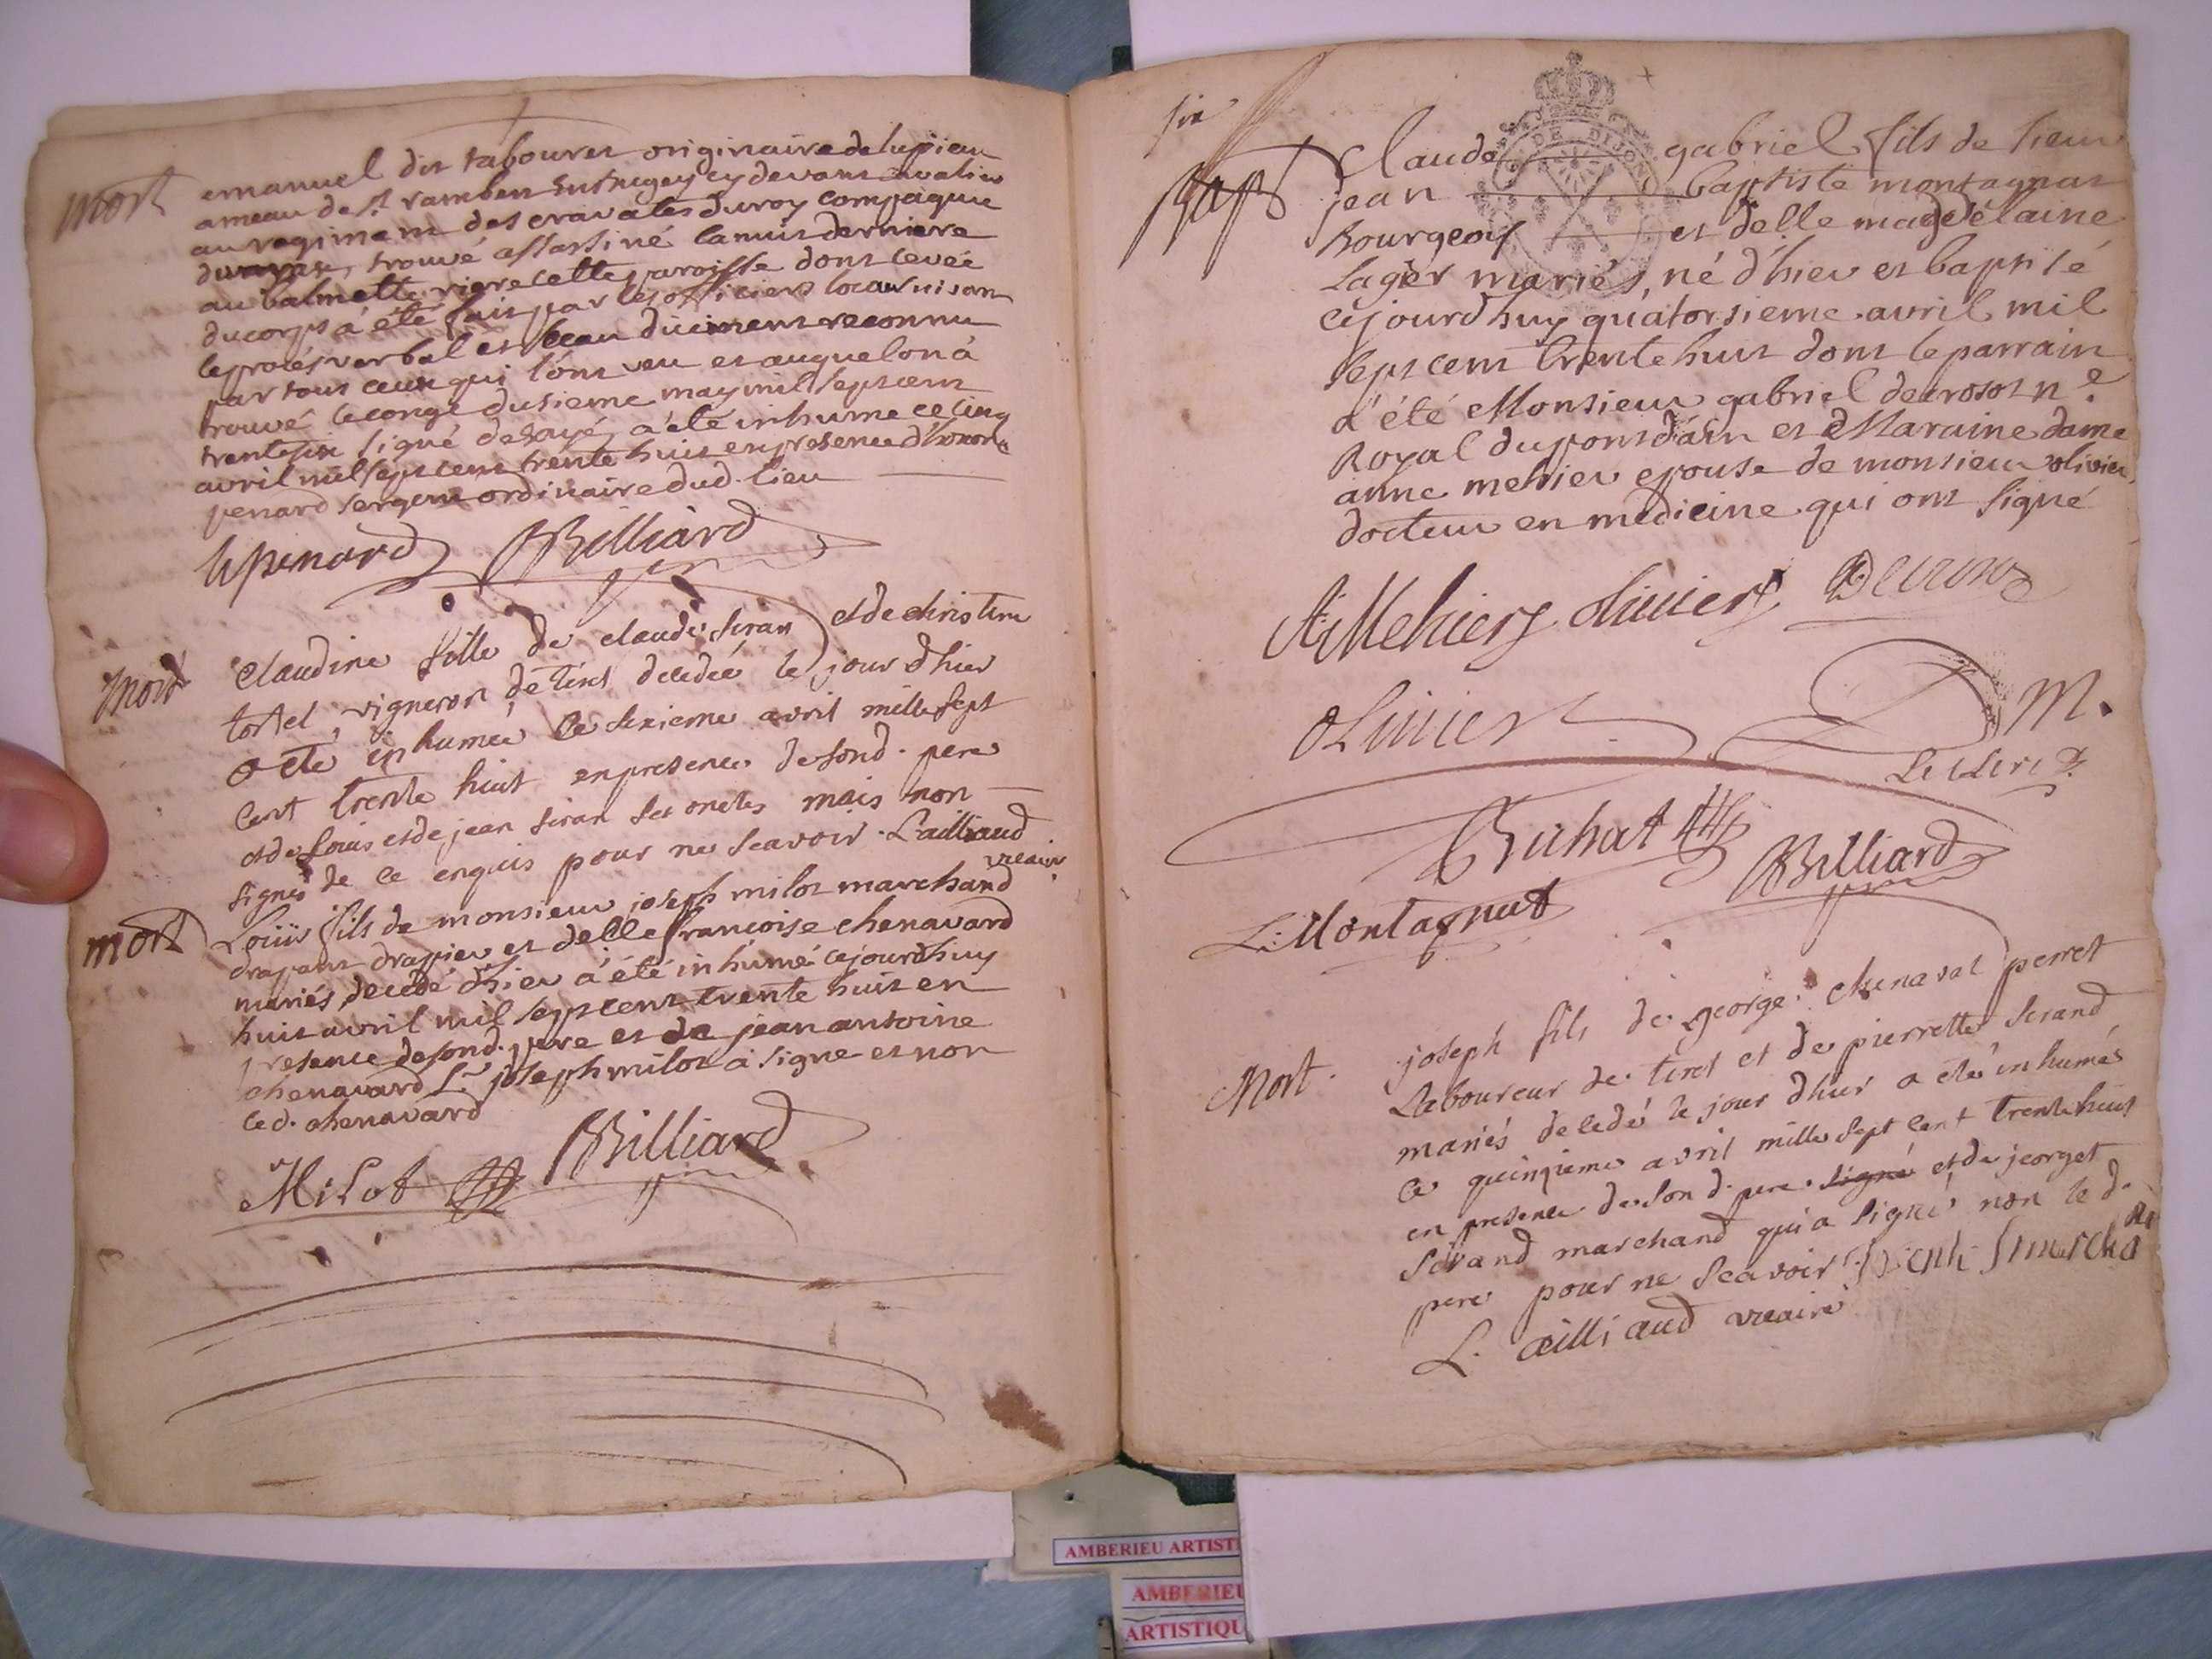 mort
emanuel dit tabouret originaire de lupieu
ameau de st rambert en bugey cy devant cavalier
au regiment des cravates du roy compagnie
trouvé assassiné la nuit derniere
au balmette riere cette paroisse dont levée
du corps a été fait par les officiers locaux
le procés verbal et duement reconnu
par tous ceux qui l'ont veu et auquel on à
trouvé le congé du sieme may mil sept cent
trente six signé à été inhumé ce cinq
avril mil sept cent trente huit en presence d'honorle
penard sergent ordinaire dud. lieu
penard BBilliard
mort
Claudine fille de claude siran et de christine
tortel, vigneron de tiret decedée le jour d'hier
a eté inhumée le sixieme avril mille sept
cent trente huit en presence de sond. pere
et de Louis et de jean siran ses oncles mais non
signés de ce enquis pour ne scavoir. L'ailliaud
vicaire.
mort
Loüis fils de monsieur joseph milot marchand
drapant drapier et delle francoise chenavard
mariés, decedé d'hier a été inhumé cejourdhuy
huit avril mil sept cent trente huit en
presence de sond. pere et de jean antoine
chenavard Sr joseph milot à signé et non
led. chenavard
Milot BBilliard
six
Bapt
Claude gabriel fils de sieur
jean baptiste montagnat
Bourgeois et delle magdelaine
Lager mariés, né d'hier et baptisé
cejourdhuy quatorsieme avril mil
sept cent trente huit dont le parrain
a été Monsieur gabriel decrosot ne
Royal du pont d'ain et Maraine dame
anne mehier epouse de monsieur olivier,
docteur en medicine qui ont signé
DE DIJON
A: Mehiers olivier Decroso
olivier D M.
Leclerc
Buchat BBilliard
L: Montagnat
Mort.
joseph fils de george chenaval perret
Laboureur de tiret et de pierrette sirand
mariés decedé le jour d'hier a eté inhumés
ce quinzieme avril mille sept cent trente huit
en presence de son d. pere signé et de jeorget
sirand marchand qui a signé non le d.
pere pour ne scavoir.
L. ailliaud vicaire
AMBERIEU ARTISTI
AMBERIEU
ARTISTIQU